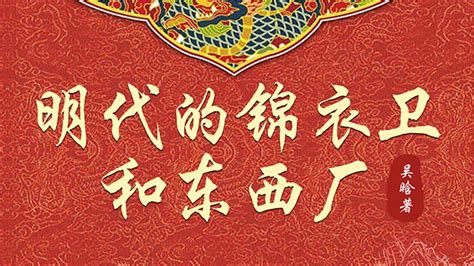 明代的锦衣卫
和东西厂
吴晗著